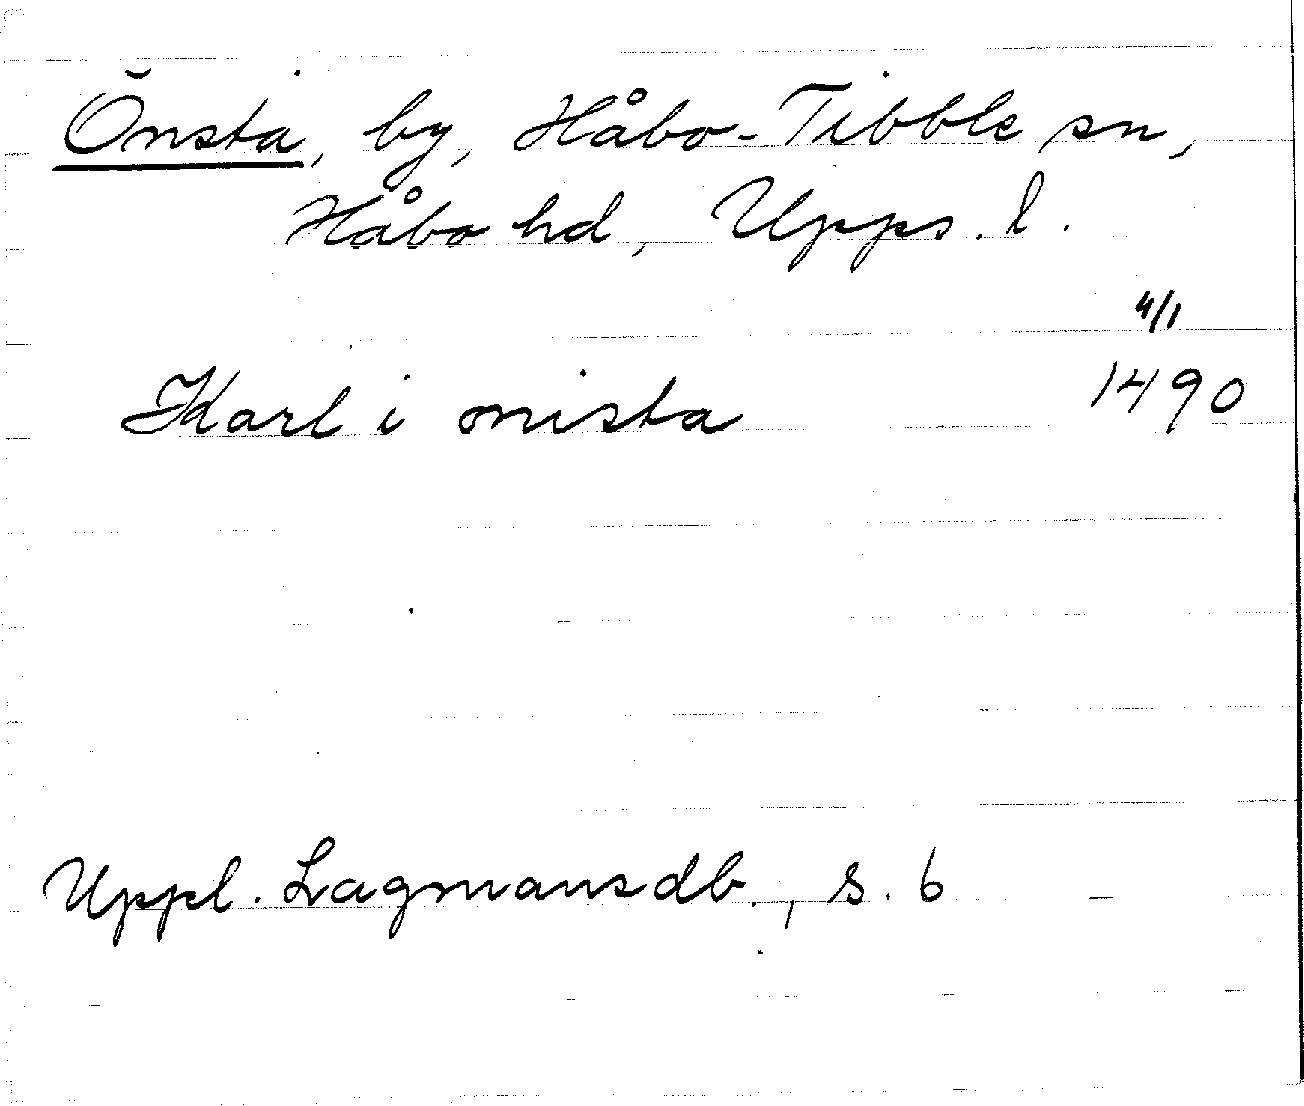 Önsta, by, Håbo-Tibble sn,
Håbo hd, Upps. l.
4/1
Karl i onista 1490
Uppl. Lagmansdb., s. 6